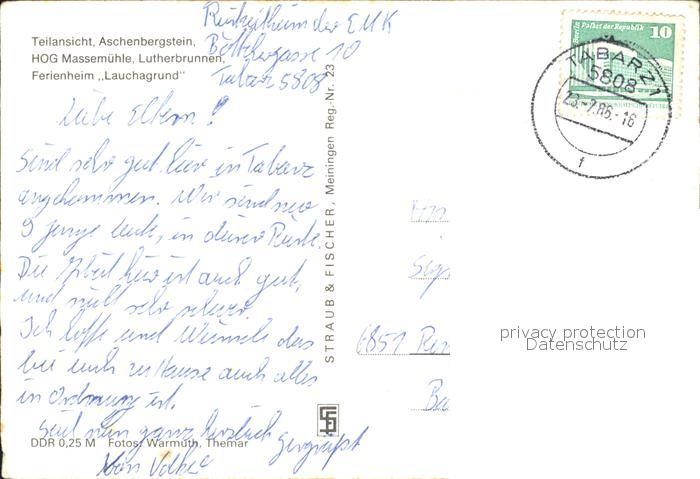 Teilansicht, Aschenbergstein,
HOG Massemühle, Lutherbrunnen,
Ferienheim „Lauchagrund"
der EMK
10
Tabarz 5808
Liebe Eltern!
Sind sehr gut hier in Tabarz
angekommen. Wir sind nur
9 junge Leute, in dieser
Die Arbeit hier ist auch gut,
und nicht sehr schwer.
Ich hoffe und Wünsche das
bei euch zu Hause auch alles
in Ordnung ist.
Seid nun ganz herzlich gegrüßt
von Volker
DDR 0,25 M Fotos: Warmuth, Themar
STRAUB & FISCHER, Meiningen Reg.-Nr. 23
Palast der Republik
10
TABARZ 1
5808
-16
f
6851
privacy protection
Datenschutz